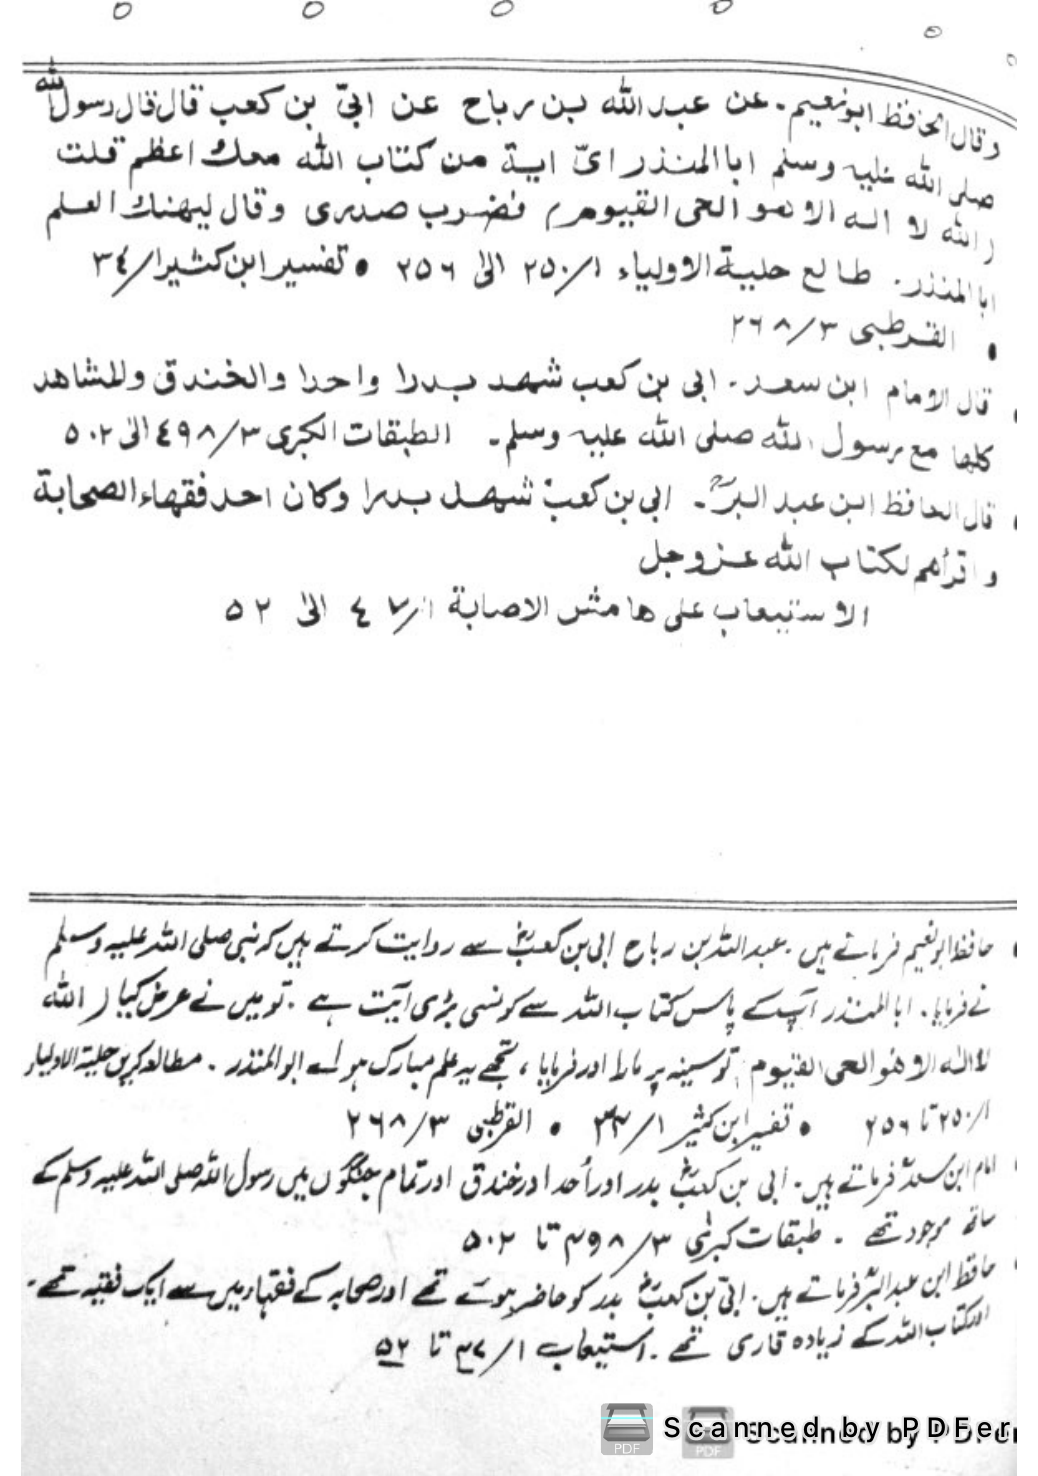 وقال الحافظ ابو نعیم۔ عن عبد الله بن رباح عن ابیّ بن کعب قال قال رسول الله
صلی الله علیه وسلم ابا المنذر ایّ ایة من کتاب الله معك اعظم قلت
(الله لا اله الا هو الحی القیوم) فضرب صدری وقال لیهنك العلم
ابا المنذر۔ طالع حلیة الاولیاء ۱/۲۵۰ الیٰ ۲۵۶ • تفسیر ابن کثیر ۱/۳٤
• القرطبی ۳/۲۶۸
• قال الامام ابن سعد۔ ابی بن کعب شهد بدرا واحدا والخندق والمشاهد
کلها مع رسول الله صلی الله علیه وسلم۔ الطبقات الکبری ۳/٤۹۸ الیٰ ۵۰۲
• قال الحافظ ابن عبد البرؒ۔ ابی بن کعبؓ شهد بدرا وکان احد فقهاء الصحابة
و اقرأهم لکتاب الله عزوجل
الاستیعاب علی هامش الاصابة ۱/٤۷ الیٰ ۵۲
• حافظ ابو نعیم فرماتے ہیں۔ عبد اللہ بن رباح ابی بن کعبؓ سے روایت کرتے ہیں کہ نبی صلی اللہ علیہ وسلم
نے فرمایا۔ ابا المنذر آپ کے پاس کتاب اللہ سے کونسی بڑی آیت ہے۔ تو میں نے عرض کیا (اللہ
لا الہ الا ھو الحی القیوم) تو سینہ پر مارا اور فرمایا، تجھے یہ علم مبارک ہو اے ابو المنذر۔ مطالعہ کریں حلیۃ الاولیاء
۱/۲۵۰ تا ۲۵۶ • تفسیر ابن کثیر ۱/۳۴ • القرطبی ۳/۲۶۸
• امام ابن سعدؒ فرماتے ہیں۔ ابی بن کعبؓ بدر اور اُحد اور خندق اور تمام جنگوں میں رسول اللہ صلی اللہ علیہ وسلم کے
ساتھ موجود تھے۔ طبقات کبریٰ ۳/۴۹۸ تا ۵۰۲
• حافظ ابن عبد البرؒ فرماتے ہیں۔ ابیّ بن کعبؓ بدر کو حاضر ہوئے تھے اور صحابہ کے فقہاء میں سے ایک فقیہ تھے۔
اور کتاب اللہ کے زیادہ قاری تھے۔ استیعاب ۱/۴۷ تا ۵۲
Scanned by PDFer
Scanned by PDFer